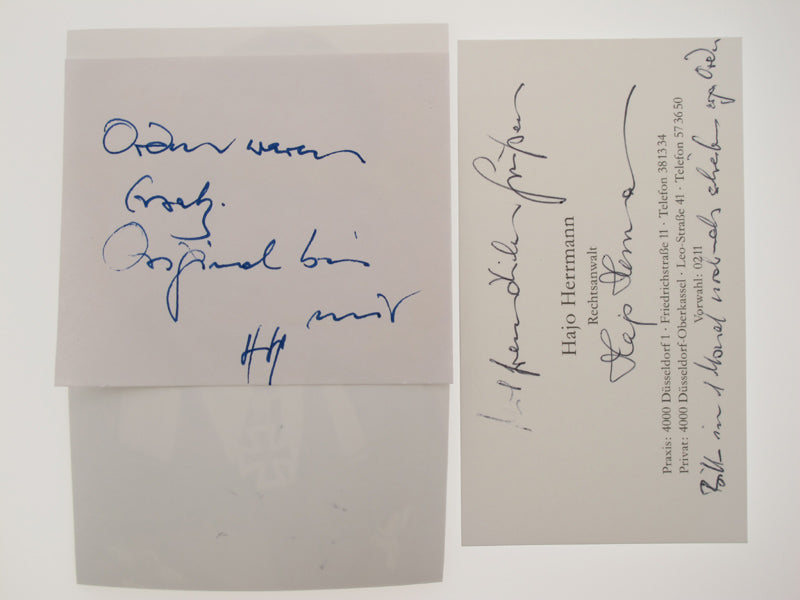 Orden waren
Ersatz.
Original bei
mir
HH
Mit freundlichen Grüßen
Hajo Herrmann
Rechtsanwalt
Hajo Herrmann
Praxis: 4000 Düsseldorf 1 · Friedrichstraße 11 · Telefon 381334
Privat: 4000 Düsseldorf-Oberkassel · Leo-Straße 41 · Telefon 573650
Vorwahl: 0211
Bitte in 1 Monat nochmals schreiben wegen Orden